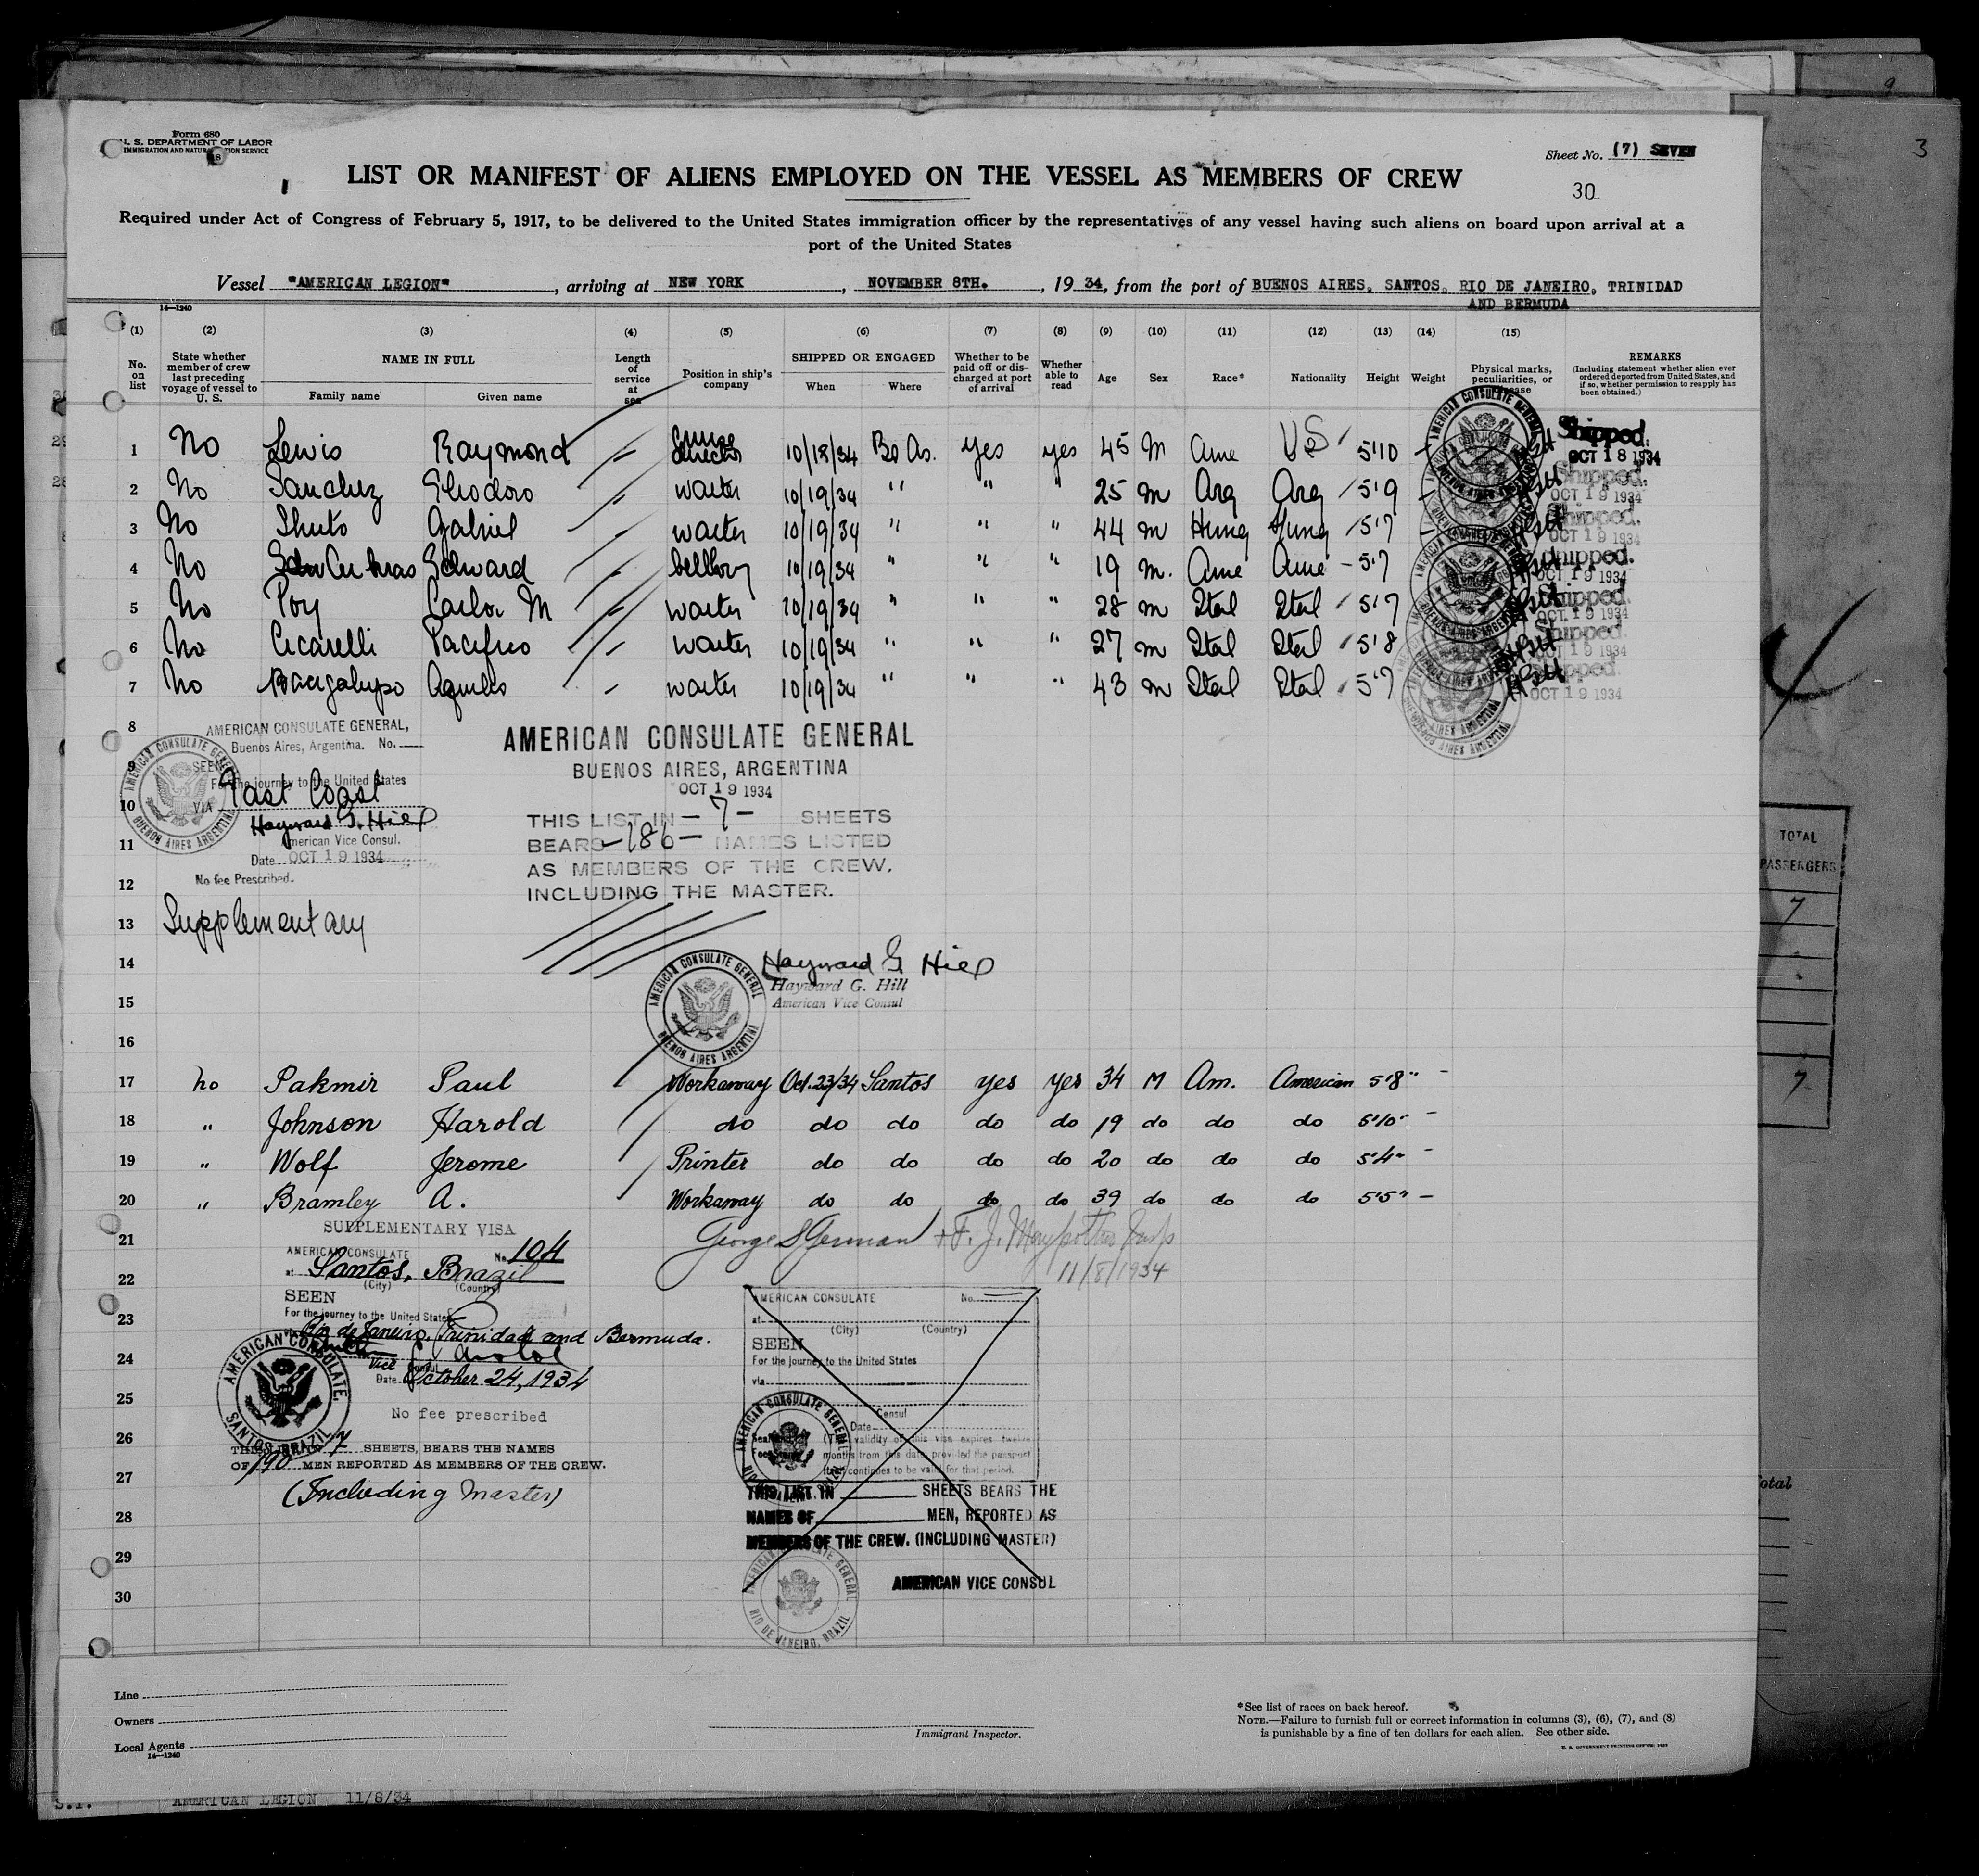 Form 680
U. S. DEPARTMENT OF LABOR
IMMIGRATION AND NATURALIZATION SERVICE
Sheet No. (7) SEVEN
30
3
LIST OR MANIFEST OF ALIENS EMPLOYED ON THE VESSEL AS MEMBERS OF CREW
Required under Act of Congress of February 5, 1917, to be delivered to the United States immigration officer by the representatives of any vessel having such aliens on board upon arrival at a
port of the United States
Vessel "AMERICAN LEGION", arriving at NEW YORK, NOVEMBER 8TH., 1934, from the port of BUENOS AIRES, SANTOS, RIO DE JANEIRO, TRINIDAD
AND BERMUDA
14—1240
(1) (2) (3) (4) (5) (6) (7) (8) (9) (10) (11) (12) (13) (14) (15)
No. on list
State whether member of crew last preceding voyage of vessel to U. S.
NAME IN FULL
Family name Given name
Length of service at sea
Position in ship's company
SHIPPED OR ENGAGED
When Where
Whether to be paid off or discharged at port of arrival
Whether able to read
Age Sex Race* Nationality Height Weight
Physical marks, peculiarities, or disease
REMARKS
(Including statement whether alien ever ordered deported from United States, and if so, whether permission to reapply has been obtained.)
1 No Lewis Raymond Cruise Director 10/18/34 Bs As. yes yes 45 M Ame US 5'10 Shipped. OCT 18 1934
2 No Sanchez Eliodoro waiter 10/19/34 " " " 25 m Arg Arg 5'9 Shipped. OCT 19 1934
3 No Gabriel waiter 10/19/34 " " " 44 m Hung Hung 5'7 Shipped. OCT 19 1934
4 No Edward bellboy 10/19/34 " " " 19 m. Ame Ame 5'7 Shipped. OCT 19 1934
5 No Poy Carlos M waiter 10/19/34 " " " 28 m Ital Ital 5'7 Shipped. OCT 19 1934
6 No Cicarelli Pacifico waiter 10/19/34 " " " 27 m Ital Ital 5'8 Shipped. OCT 19 1934
7 No waiter 10/19/34 " " " 43 m Ital Ital 5'7 Shipped. OCT 19 1934
8
AMERICAN CONSULATE GENERAL,
Buenos Aires, Argentina. No.
9 SEEN
For the journey to the United States
10 VIA East Coast
Hayward G. Hill
11 American Vice Consul.
Date OCT 19 1934
12 No fee Prescribed.
AMERICAN CONSULATE GENERAL BUENOS AIRES ARGENTINA
AMERICAN CONSULATE GENERAL
BUENOS AIRES, ARGENTINA
OCT 19 1934
THIS LIST IN —7— SHEETS
BEARS —186— NAMES LISTED
AS MEMBERS OF THE CREW,
INCLUDING THE MASTER.
13 Supplementary
14 Hayward G. Hill
Hayward G. Hill
15 American Vice Consul
AMERICAN CONSULATE GENERAL BUENOS AIRES ARGENTINA
16
17 no Pakmir Paul Workaway Oct. 23/34 Santos yes yes 34 M Am. American 5'8" -
18 " Johnson Harold do do do do do 19 do do do 5'10" -
19 " Wolf Jerome Printer do do do do 20 do do do 5'4" -
20 " Bramley A. Workaway do do do do 39 do do do 5'5" -
SUPPLEMENTARY VISA
21 George S German
11/8/1934
AMERICAN CONSULATE No. 104
22 at Santos, Brazil
(City) (Country)
SEEN
23 For the journey to the United States
via Rio de Janeiro, Trinidad and Bermuda.
24 Vice Consul
Date October 24, 1934
25 No fee prescribed
AMERICAN CONSULATE, SANTOS, BRAZIL
26 THIS LIST IN 7 SHEETS, BEARS THE NAMES
OF 190 MEN REPORTED AS MEMBERS OF THE CREW.
27 (Including Master)
AMERICAN CONSULATE No.
at
(City) (Country)
SEEN
For the journey to the United States
via
Consul
Date
(The validity of this visa expires twelve
months from this date provided the passport
continues to be valid for that period.
AMERICAN CONSULATE GENERAL
THIS LIST IN SHEETS BEARS THE
28 NAMES OF MEN, REPORTED AS
MEMBERS OF THE CREW. (INCLUDING MASTER)
29
AMERICAN VICE CONSUL
30
AMERICAN CONSULATE GENERAL RIO DE JANEIRO, BRAZIL
Line
Owners
Local Agents
14—1240
Immigrant Inspector.
*See list of races on back hereof.
NOTE.—Failure to furnish full or correct information in columns (3), (6), (7), and (8)
is punishable by a fine of ten dollars for each alien. See other side.
U. S. GOVERNMENT PRINTING OFFICE
TOTAL
PASSENGERS
7
7
otal
AMERICAN LEGION 11/8/34